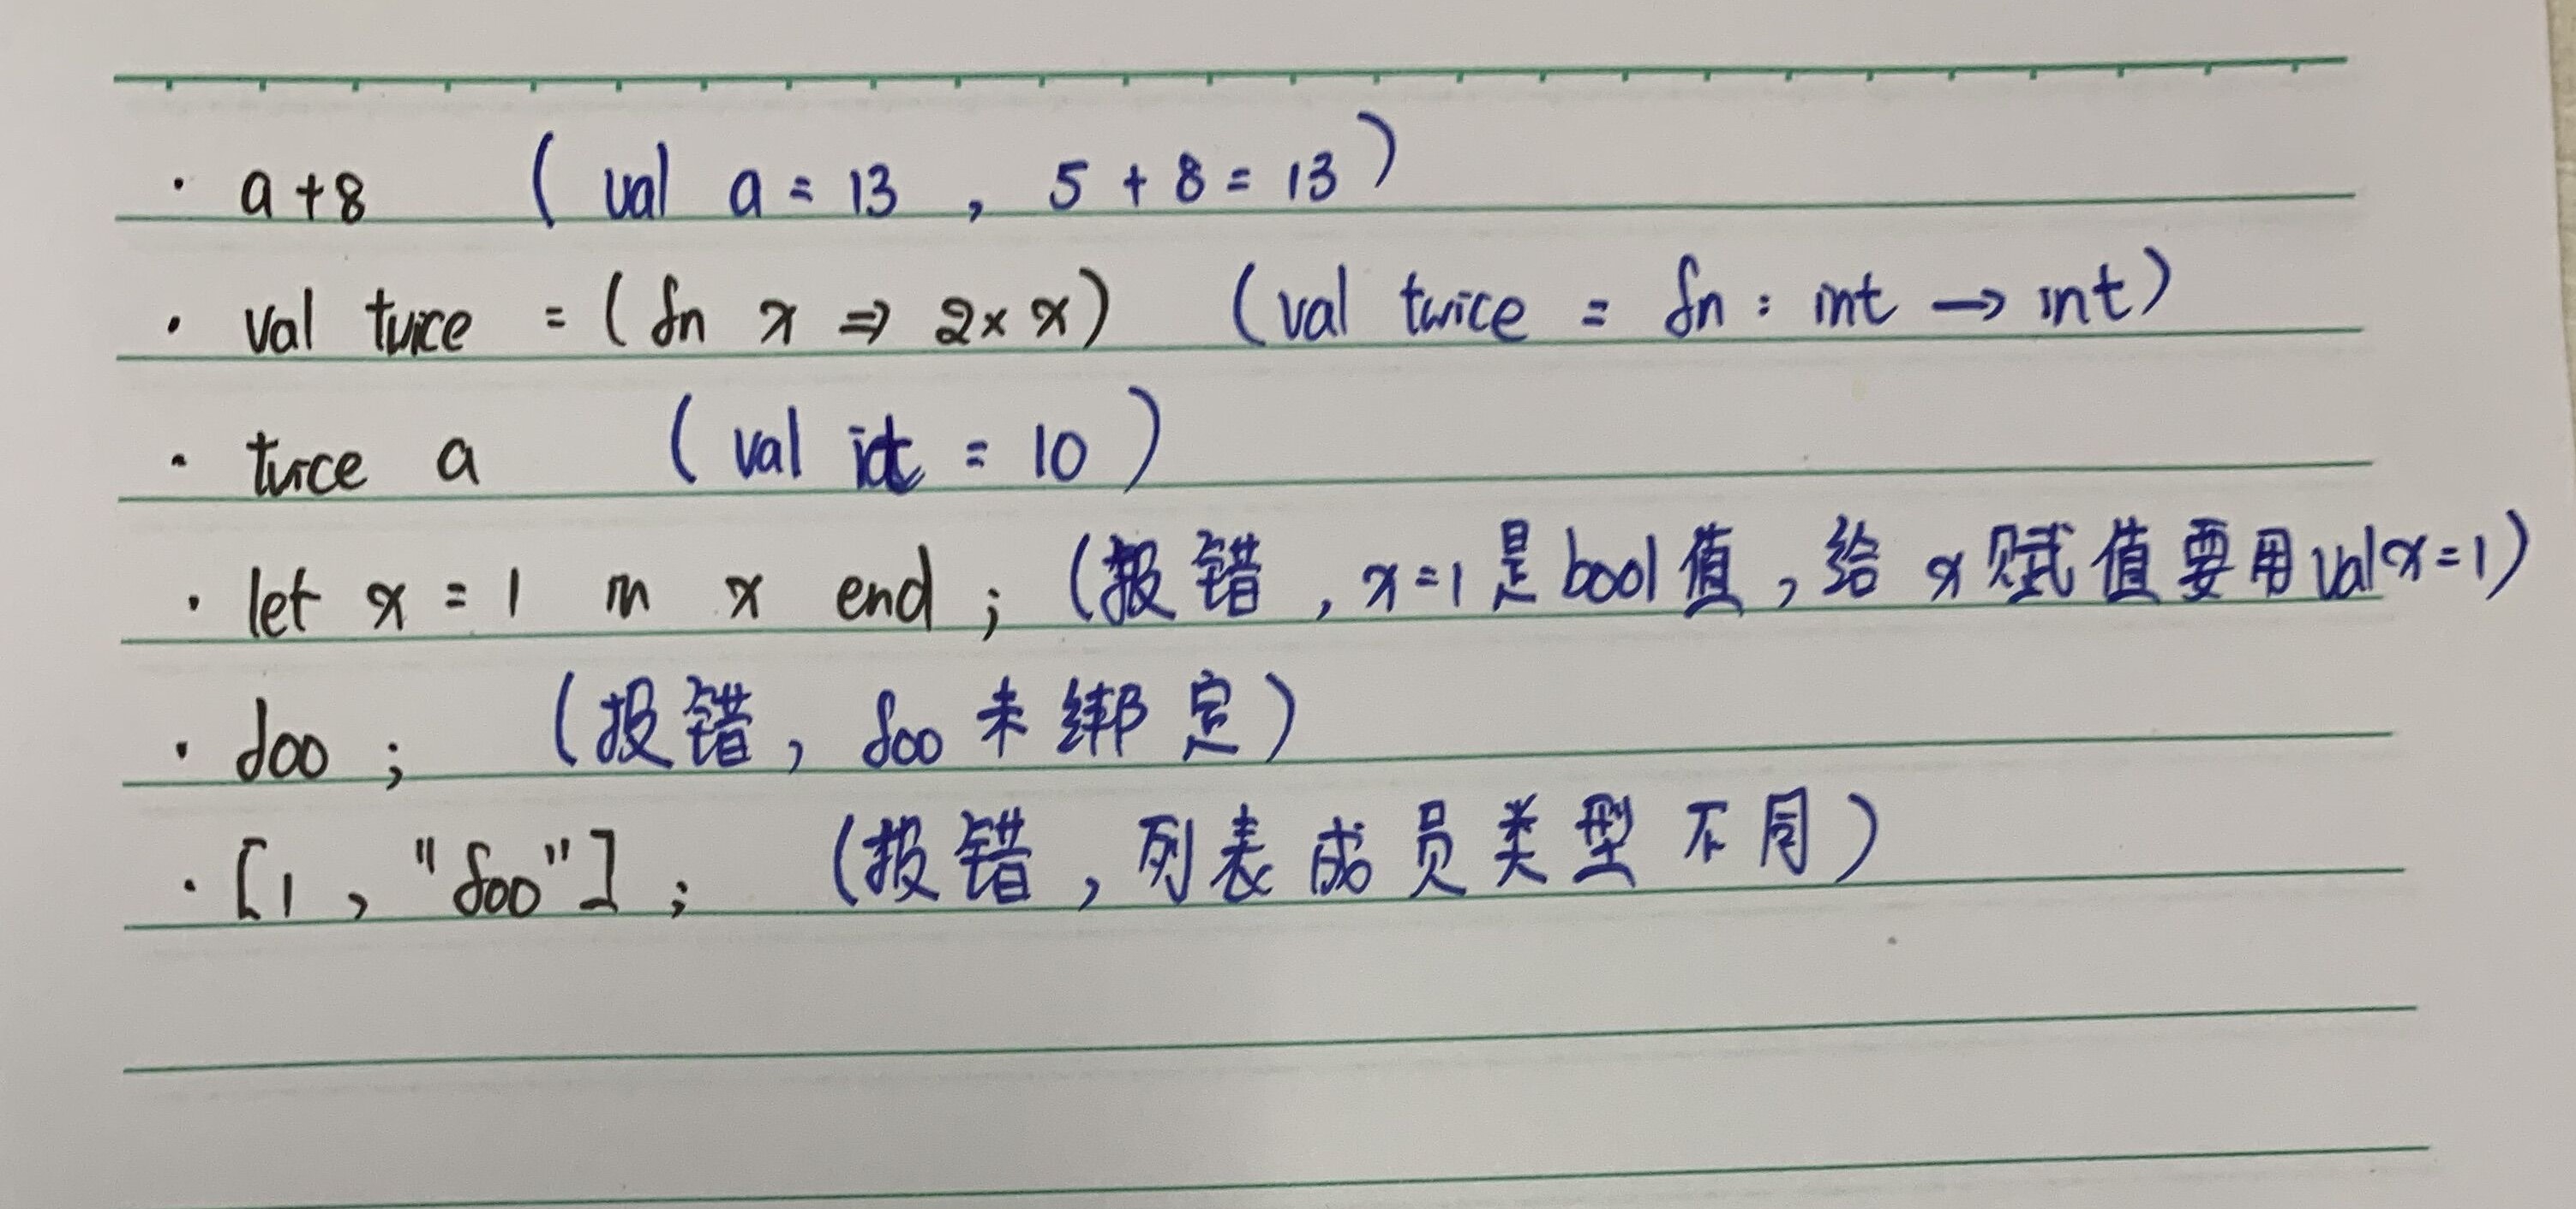 · a+8 ( val a = 13 , 5 + 8 = 13 )
· val twice = ( fn x => 2 × x ) ( val twice = fn : int → int )
· twice a ( val it = 10 )
· let x = 1 in x end ; (报错 , x=1是bool值 , 给 x赋值要用val x=1)
· foo ; (报错 , foo未绑定)
· [1 , "foo"] ; (报错 , 列表成员类型不同)